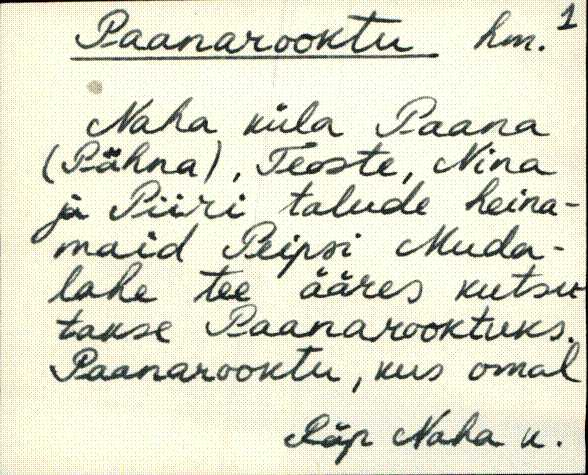 Paanarooktu hm. 1
Naha küla Paana
(Pähna), Teoste, Nina
ja Piiri talude heina-
maid Peipsi Muda-
lahe tee ääres kutsu
takse Paanarooktuks.
Paanarooktu, kus omal
Räp Naha k.